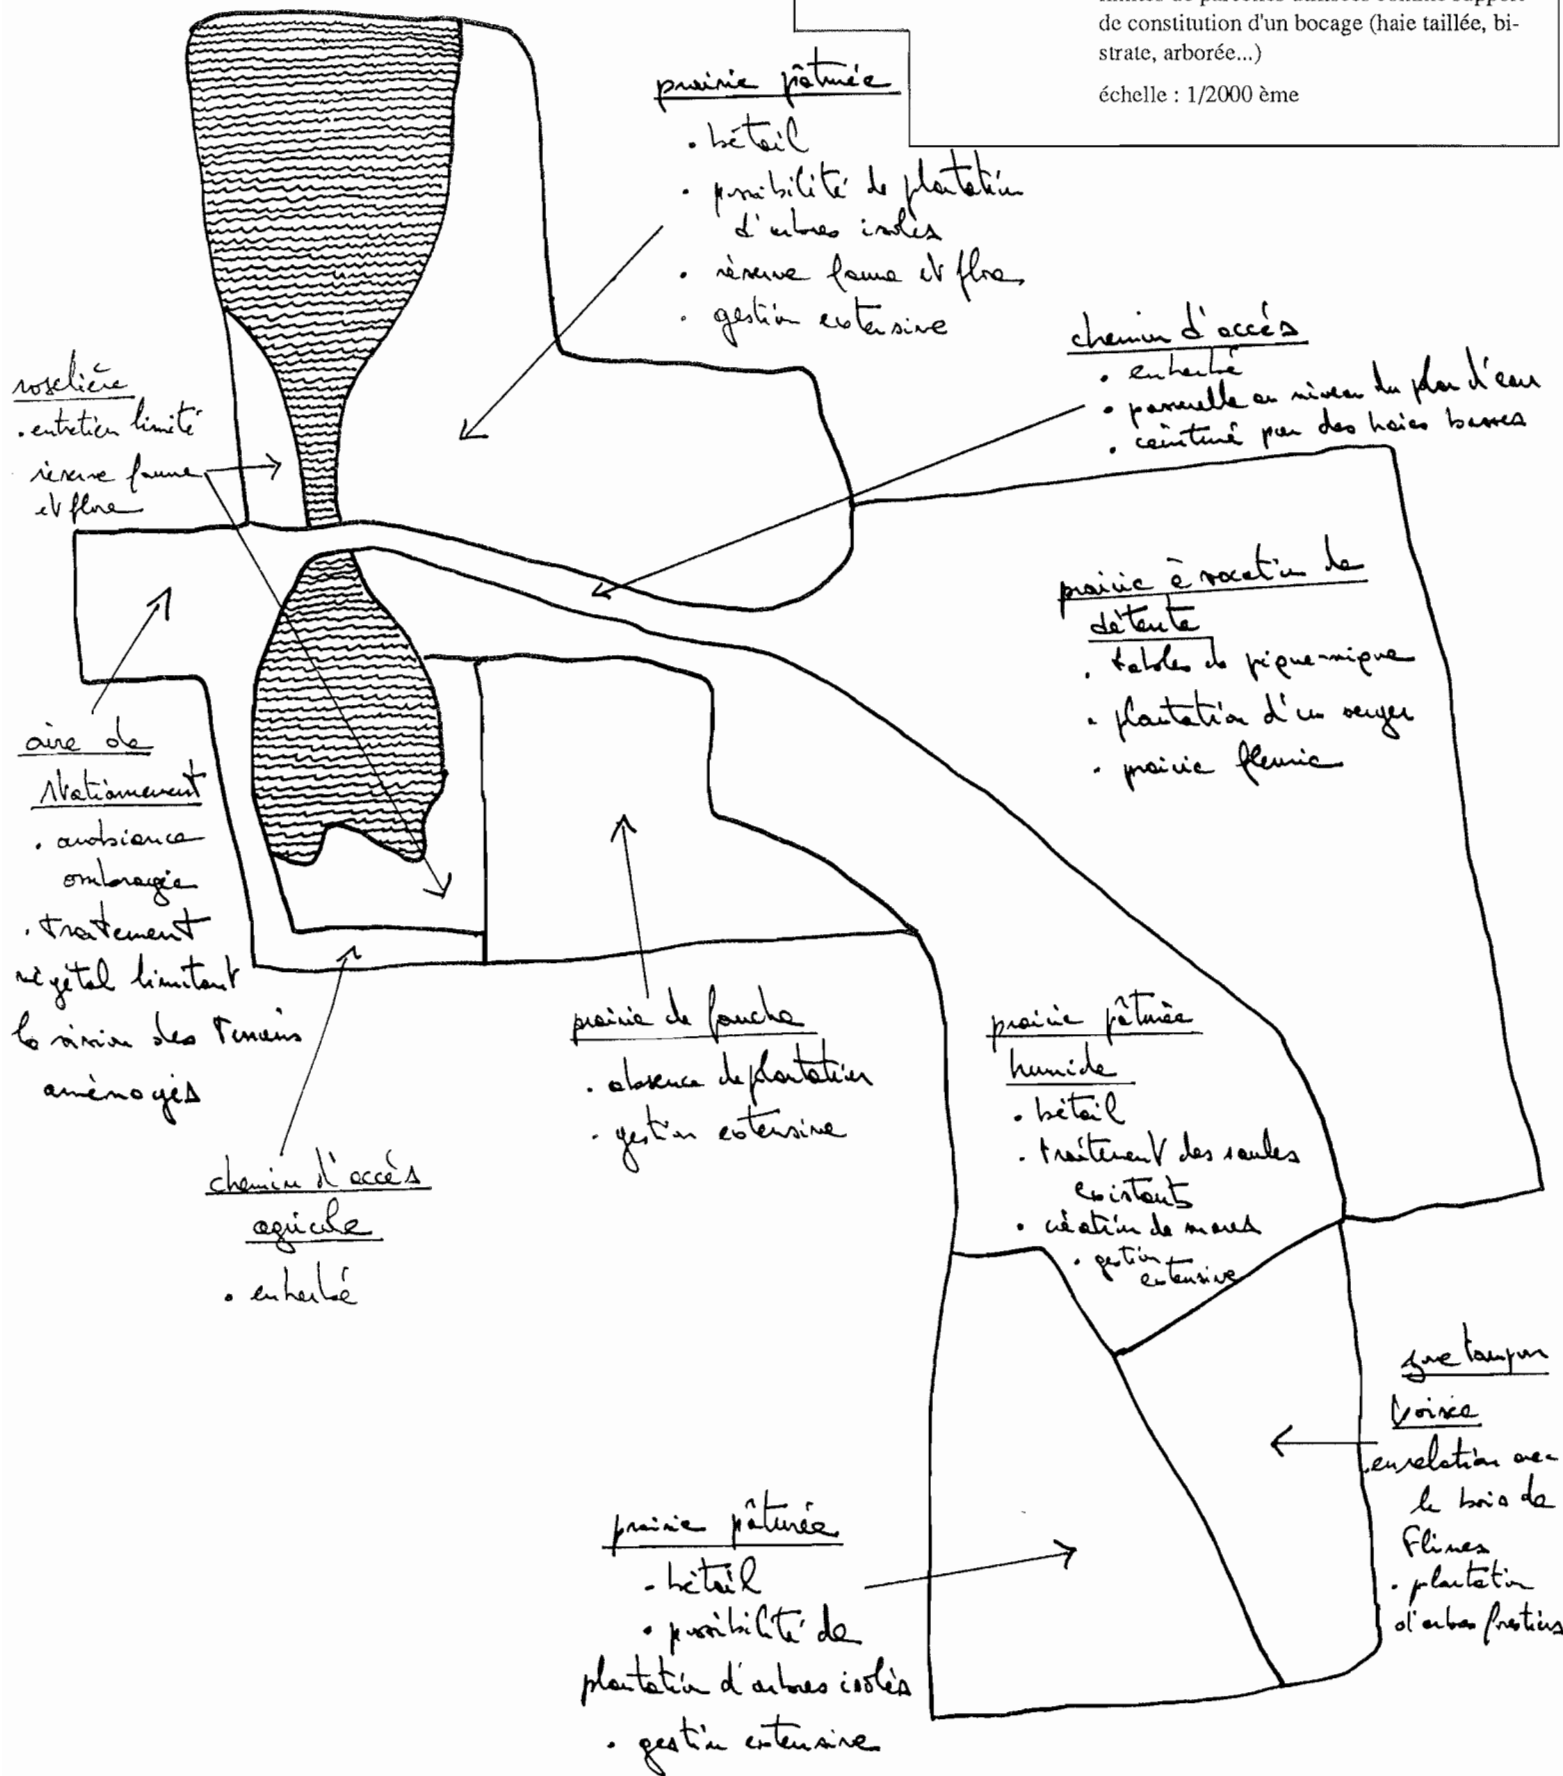 de constitution d'un bocage (haie taillée, bi-
strate, arborée...)
échelle : 1/2000 ème
prairie pâturée
• bétail
• possibilité de plantation
d'arbres isolés
• réserve faune et flore
• gestion extensive
chemin d'accés
• enherbé
• passerelle au niveau du plan d'eau
• ceinturé par des haies basses
roselière
• entretien limité
réserve faune
et flore
prairie à vocation de
détente
• tables de pique-nique
• plantation d'un verger
• prairie fleurie
aire de
stationnement
• ambiance
ombragée
• traitement
végétal limitant
la vision des terrains
aménagés
chemin d'accès
agricole
• enherbé
prairie de fauche
• absence de plantation
• gestion extensive
prairie pâturée
humide
• bétail
• traitement des saules
existants
• création de mares
• gestion
extensive
zone tampon
boisée
en relation avec
le bois de
Flines
• plantation
d'arbres forestiers
prairie pâturée
• bétail
• possibilité de
plantation d'arbres isolés
• gestion extensive